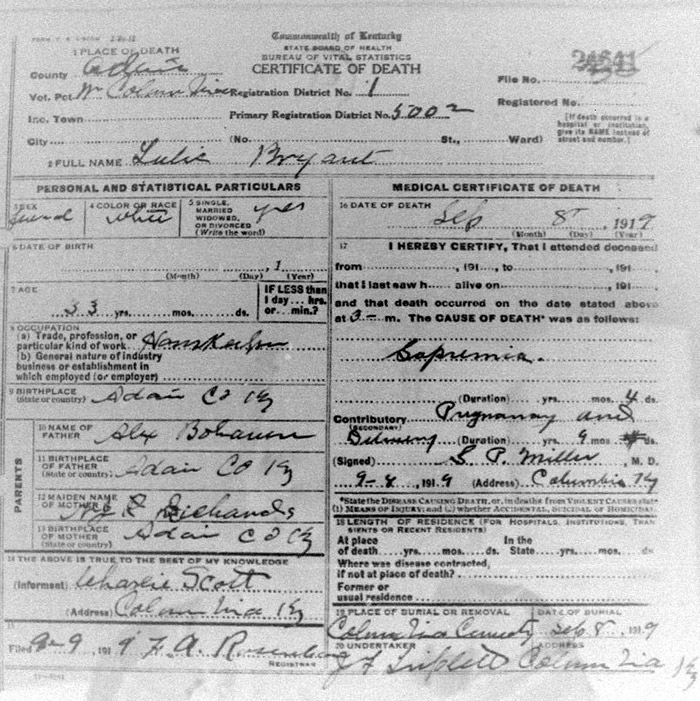 Commonwealth of Kentucky
STATE BOARD OF HEALTH
BUREAU OF VITAL STATISTICS
CERTIFICATE OF DEATH
1 PLACE OF DEATH
County Adair
File No. 24641
Vot. Pct. W Columbia Registration District No. 1
Registered No.
Inc. Town Primary Registration District No. 5002
[If death occurred in a hospital or institution, give its NAME instead of street and number.]
City (No. St., Ward)
2 FULL NAME Lulie Bryant
PERSONAL AND STATISTICAL PARTICULARS
3 SEX
4 COLOR OR RACE white
5 SINGLE, MARRIED WIDOWED, OR DIVORCED (Write the word) yes
6 DATE OF BIRTH
, 1
(Month) (Day) (Year)
7 AGE
33 yrs. mos. ds.
IF LESS than 1 day hrs. or min.?
8 OCCUPATION
(a) Trade, profession, or
particular kind of work Housekeeper
(b) General nature of industry
business or establishment in
which employed (or employer)
9 BIRTHPLACE
(State or country) Adair Co Ky
PARENTS
10 NAME OF FATHER Alex
11 BIRTHPLACE OF FATHER (State or country) Adair Co Ky
12 MAIDEN NAME OF MOTHER Richards
13 BIRTHPLACE OF MOTHER (State or country) Adair Co Ky
14 THE ABOVE IS TRUE TO THE BEST OF MY KNOWLEDGE
(Informant) Charlie Scott
(Address) Columbia Ky
15
Filed 9-9, 1919 F. A. Rosenbaum
REGISTRAR
MEDICAL CERTIFICATE OF DEATH
16 DATE OF DEATH
Sep 8, 1919
(Month) (Day) (Year)
17 I HEREBY CERTIFY, That I attended deceased
from , 191 , to , 191
that I last saw h alive on , 191
and that death occurred on the date stated above
at 3 m. The CAUSE OF DEATH* was as follows:
Sapremia.
(Duration) yrs. mos. 4 ds.
Contributory Pregnancy and
(SECONDARY) Delivery (Duration) yrs. 9 mos. ds.
(Signed) S. P. Miller, M. D.
9-8, 1919 (Address) Columbia Ky
*State the DISEASE CAUSING DEATH, or, in deaths from VIOLENT CAUSES state
(1) MEANS OF INJURY; and (2) whether ACCIDENTAL, SUICIDAL OR HOMICIDAL.
18 LENGTH OF RESIDENCE (FOR HOSPITALS, INSTITUTIONS, TRANSIENTS OR RECENT RESIDENTS)
At place of death yrs. mos. ds. In the State yrs. mos. ds.
Where was disease contracted,
if not at place of death?
Former or
usual residence
19 PLACE OF BURIAL OR REMOVAL DATE OF BURIAL
Columbia Cemetery Sep 8, 1919
20 UNDERTAKER ADDRESS
J F Triplett Columbia Ky